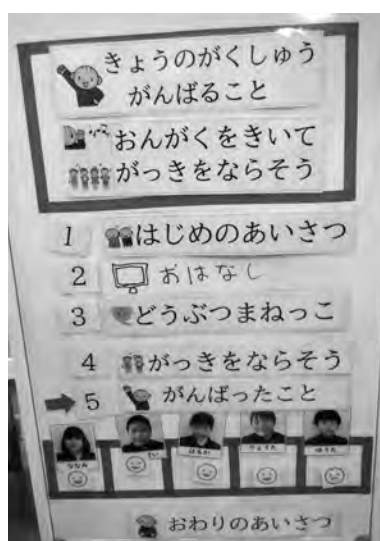 きょうのがくしゅう
がんばること
おんがくをきいて
がっきをならそう
1 はじめのあいさつ
2 おはなし
3 どうぶつまねっこ
4 がっきをならそう
5 がんばったこと
ななみ
はるか
りょうた
ゆうた
おわりのあいさつ